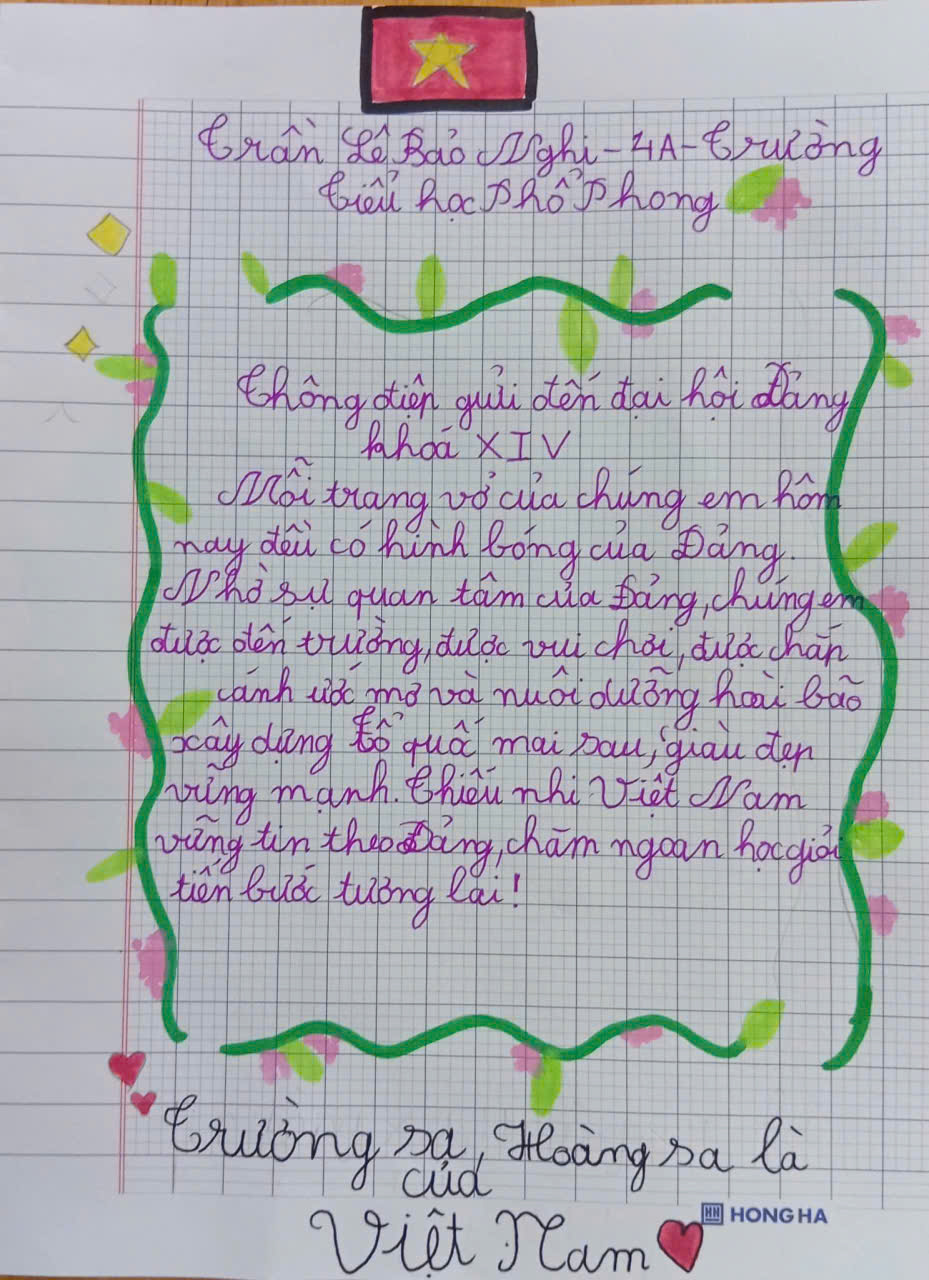 Trần Lê Bảo Nghi - 4A - Trường
tiểu học Phổ Phong
Thông điệp gửi đến đại hội Đảng
khoá XIV
Mỗi trang vở của chúng em hôm
nay đều có hình bóng của Đảng.
Nhờ sự quan tâm của Đảng, chúng em
được đến trường, được vui chơi, được chắp
cánh ước mơ và nuôi dưỡng hoài bão
xây dựng Tổ quốc mai sau, giàu đẹp
vững mạnh. Thiếu nhi Việt Nam
vững tin theo Đảng, chăm ngoan học giỏi
tiến bước tương lai!
Trường sa, Hoàng sa là
của
HN HONG HA
Việt Nam